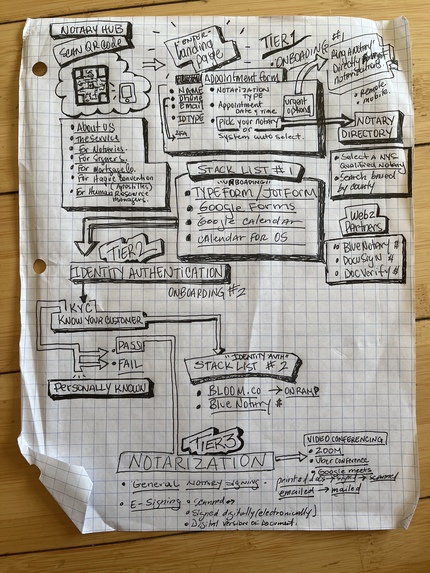 NOTARY HUB
SCAN QR CODE
Landing
page
TIER 1
• ONBOARDING #1
Ring a notary
Directly
• Remote
• mobile
Appointment Form
• NAME
• phone
• email
• ID TYPE
2FA
• NOTARIZATION
TYPE
• Appointment
Date & Time
• Pick your notary
or
System auto select.
urgent
option!
NOTARY
DIRECTORY
• Select a NYS
Qualified Notary
• Search based
by county
• About us
• The service
• For Notaries
• For Signers
• For Mortgage
• For Hague Convention
(Apostilles)
• For Human Resource
Managers.
STACK LIST #1
"ONBOARDING"
• TYPEFORM / JOTFORM
• Google Forms
• Google Calendar
• Calendar FOR OS
Web2
Partners
• Blue Notary #
• DocuSign #
• DocVerify #
TIER 2
IDENTITY AUTHENTICATION
ONBOARDING #2
KYC
KNOW YOUR CUSTOMER
• PASS
• FAIL
PERSONALLY KNOWN
"IDENTITY AUTH"
STACK LIST #2
• BLOOM.CO → ONRAMP
• Blue Notary #
TIER 3
NOTARIZATION
• General Notary Signing
• E-Signing • scanned
• Signed digitally (electronically)
• Digital version of Document.
VIDEO CONFERENCING
• ZOOM
• Uber conference
• Google meets
printed docs → signed → scanned
emailed → mailed